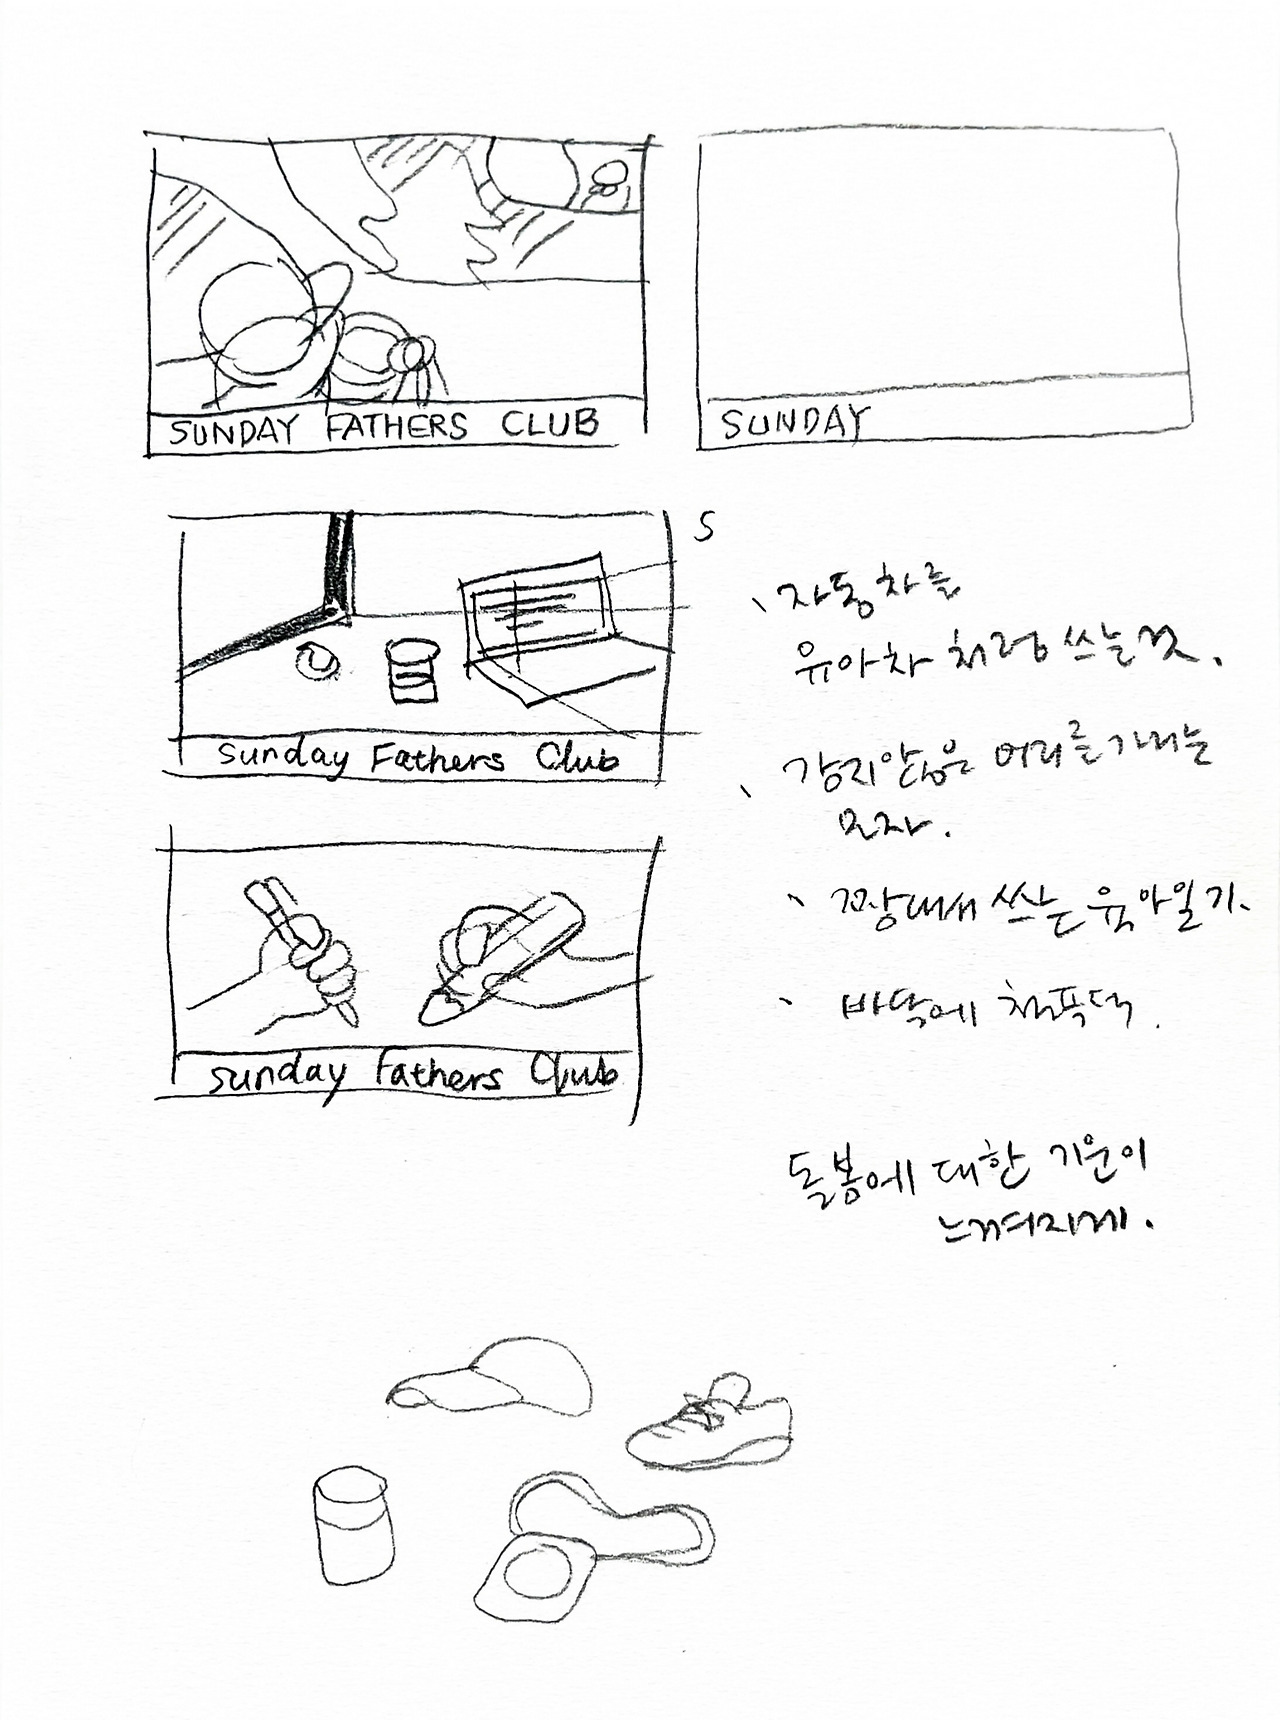 SUNDAY FATHERS CLUB
SUNDAY
S
Sunday Fathers Club
Sunday Fathers Club
자동차를
유아차 처럼 쓰는 것.
감지않은 머리를 가리는
모자.
짬내서 쓰는 육아일기.
바닥에
돌봄에 대한 기운이
느껴지게.